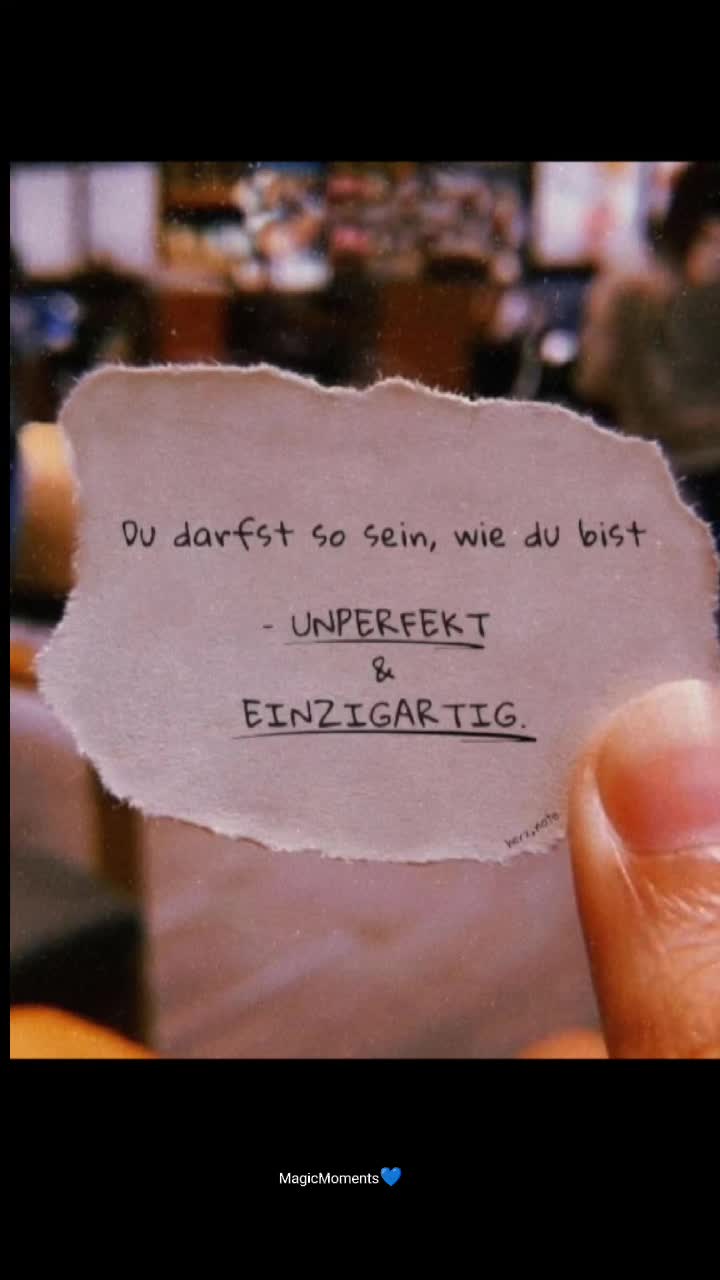 Du darfst so sein, wie du bist
- UNPERFEKT
&
EINZIGARTIG.
herz.note
MagicMoments💙